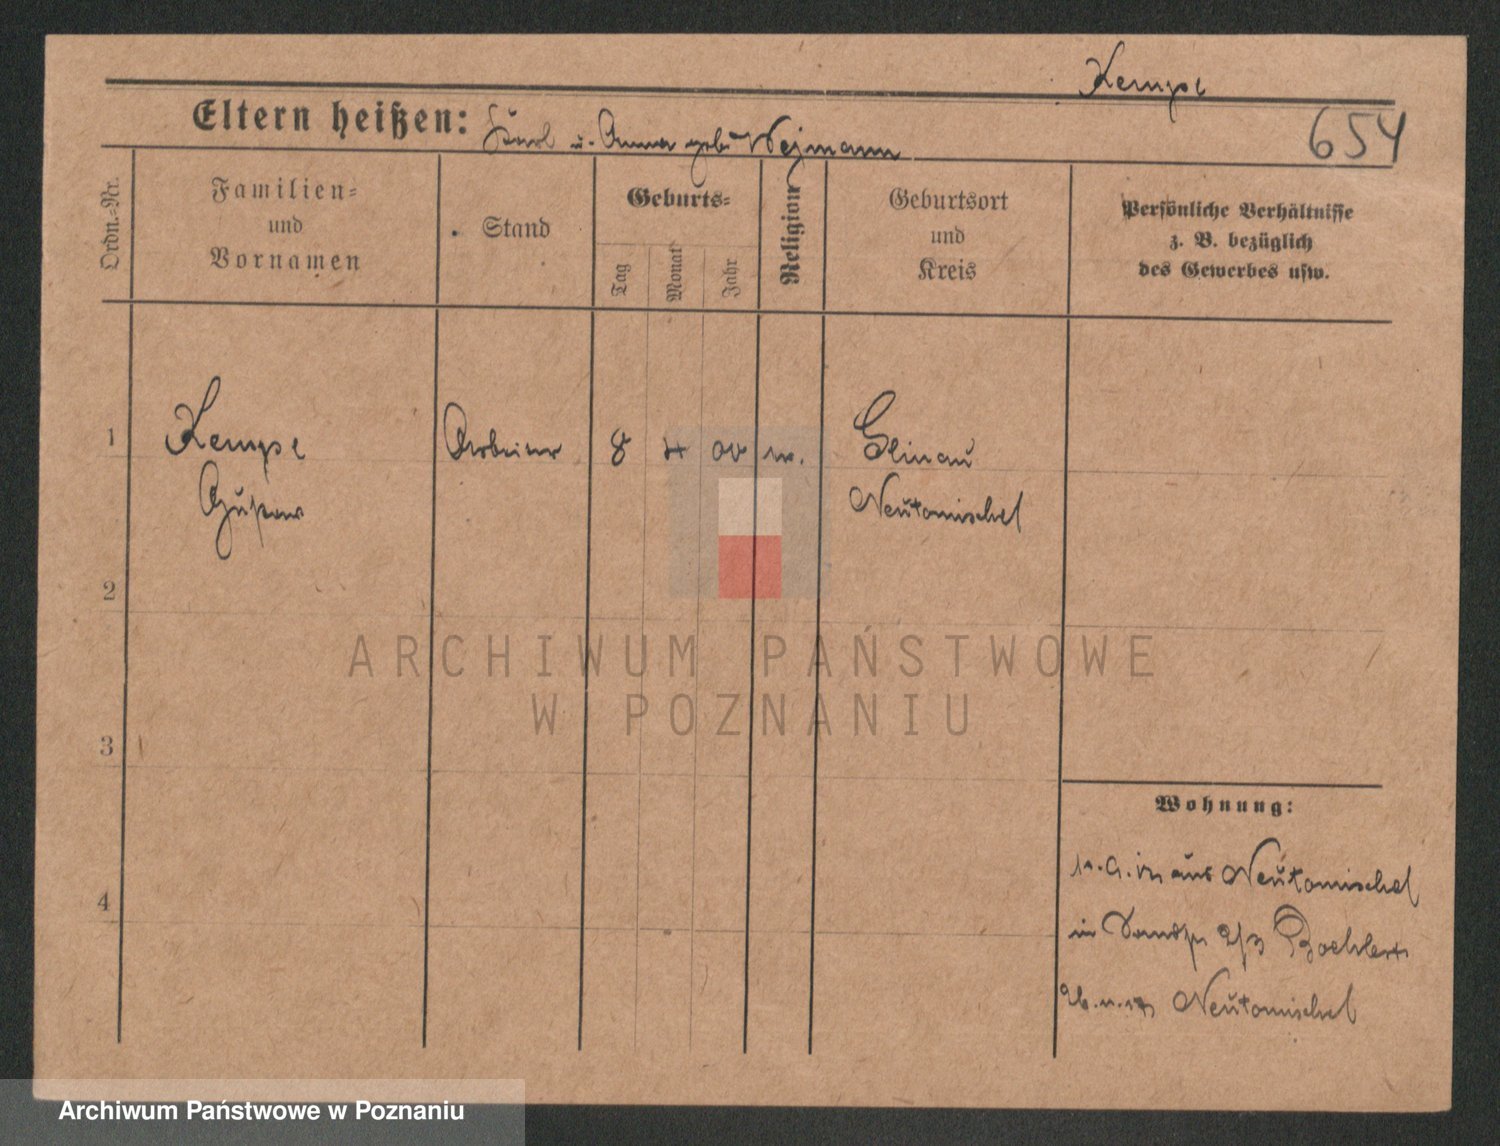 Kempe
654
Eltern heißen: Karl u. Anna geb. Wejmann
Ordn.=Nr.
Familien=
und
Vornamen
Stand
Geburts=
Tag
Monat
Jahr
Religion
Geburtsort
und
Kreis
Persönliche Verhältnisse
z. B. bezüglich
des Gewerbes usw.
1
Kempe
Gustav
Arbeiter
8
4
00
Glinau
Neutomischel
2
3
4
Wohnung:
aus Neutomischel
in
Neutomischel
ARCHIWUM PAŃSTWOWE
W POZNANIU
Archiwum Państwowe w Poznaniu